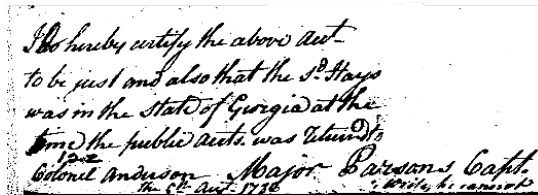 I do hereby certify the above acct
to be just and also that the Sd. Hays
was in the State of Georgia at the
time the public accts. was returnd to
Colonel Anderson Major Parsons Capt.
the 5th Augt. 1782